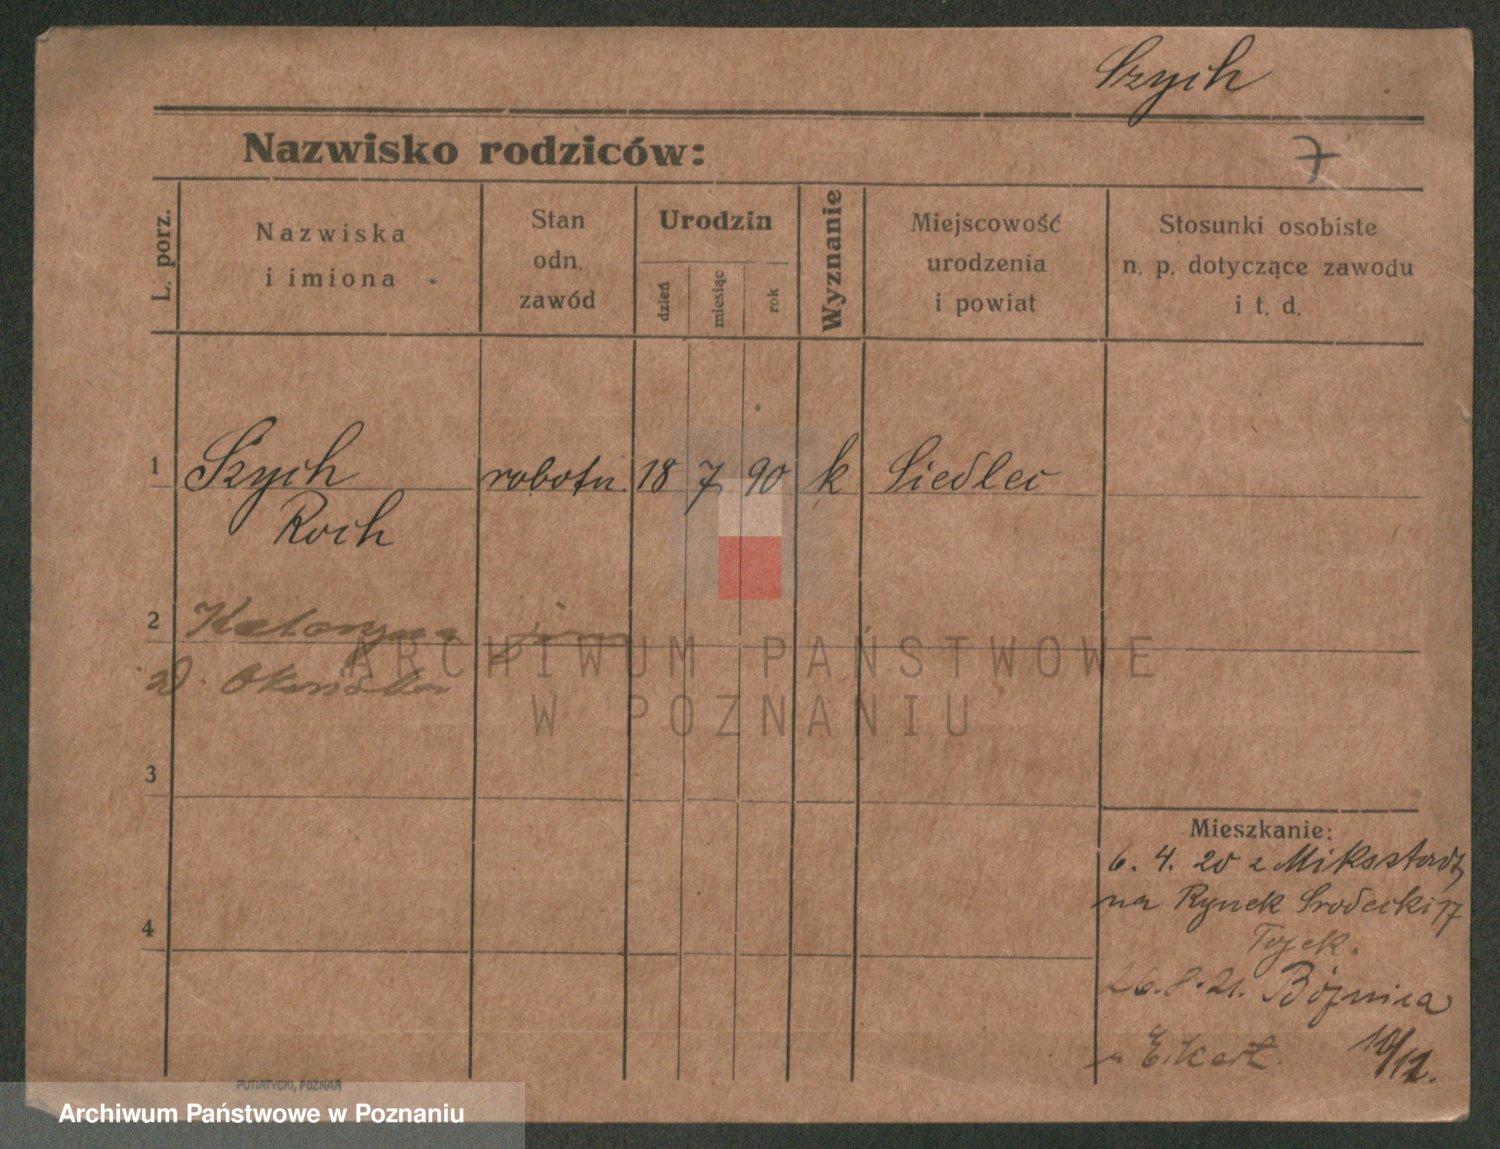 Szych
Nazwisko rodziców:
7
L. porz.
Nazwiska
i imiona
Stan
odn.
zawód
Urodzin
dzień
miesiąc
rok
Wyznanie
Miejscowość
urodzenia
i powiat
Stosunki osobiste
n. p. dotyczące zawodu
i t. d.
1 Szych robotn. 18 7 90 k Siedlec
Roch
2 Katarzyna
3
4
Mieszkanie:
6. 4. 20 z Miksztadt
na Rynek Srodecki 17
26.8.21. Bóżnica
10/12.
ARCHIWUM PAŃSTWOWE
W POZNANIU
PUTIATYCKI, POZNAŃ
Archiwum Państwowe w Poznaniu